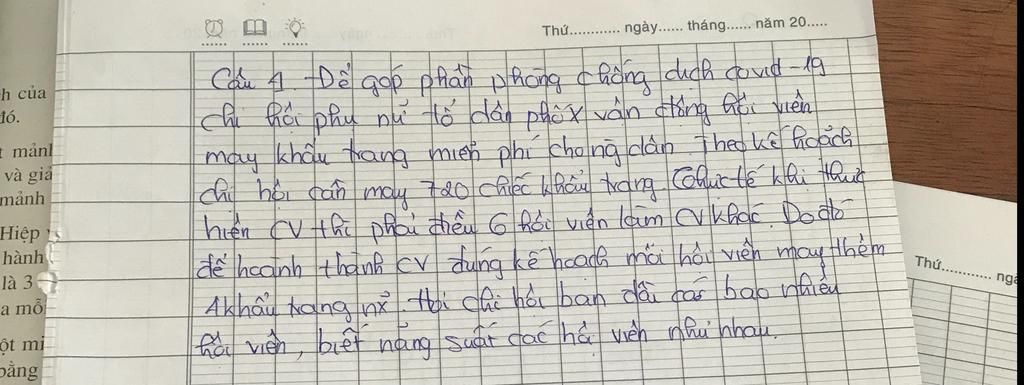 Thứ............ ngày...... tháng...... năm 20.....
Câu 4. Để góp phần phòng chống dịch covid-19
chi hội phụ nữ tổ dân phố X vận động hội viên
may khẩu trang miễn phí cho ng dân. Theo kế hoạch
chi hội cần may 720 chiếc khẩu trang. Thực tế khi thực
hiện CV thì phải điều 6 hội viên làm CV khác. Do đó
để hoành thành CV đúng kế hoạch mỗi hội viên may thêm
4 khẩu trang nx. Hỏi chi hội ban đầu có bao nhiêu
hội viên, biết năng suất các hội viên như nhau.
h của
đó.
t mảnh
và giả
mảnh
Hiệp
hành
là 3
a mỗ
ột mi
bằng
Thứ............ ngà